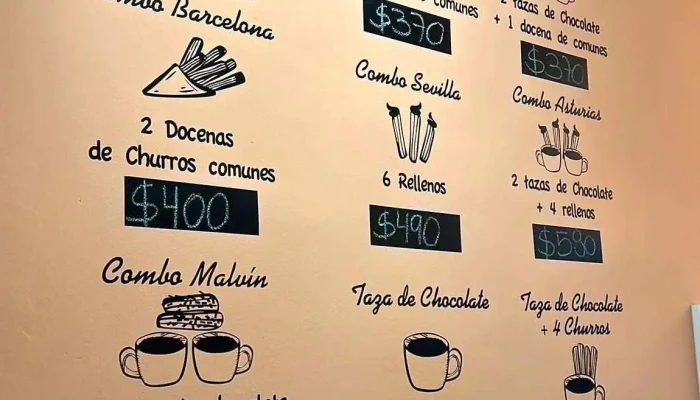 Barcelona
2 Docenas
de Churros comunes
$400
Combo Malvín
comunes
$370
Combo Sevilla
6 Rellenos
$490
Taza de Chocolate
2 tazas de Chocolate
+ 1 docena de comunes
$370
Combo Asturias
2 tazas de Chocolate
+ 4 rellenos
$580
Taza de Chocolate
+ 4 Churros